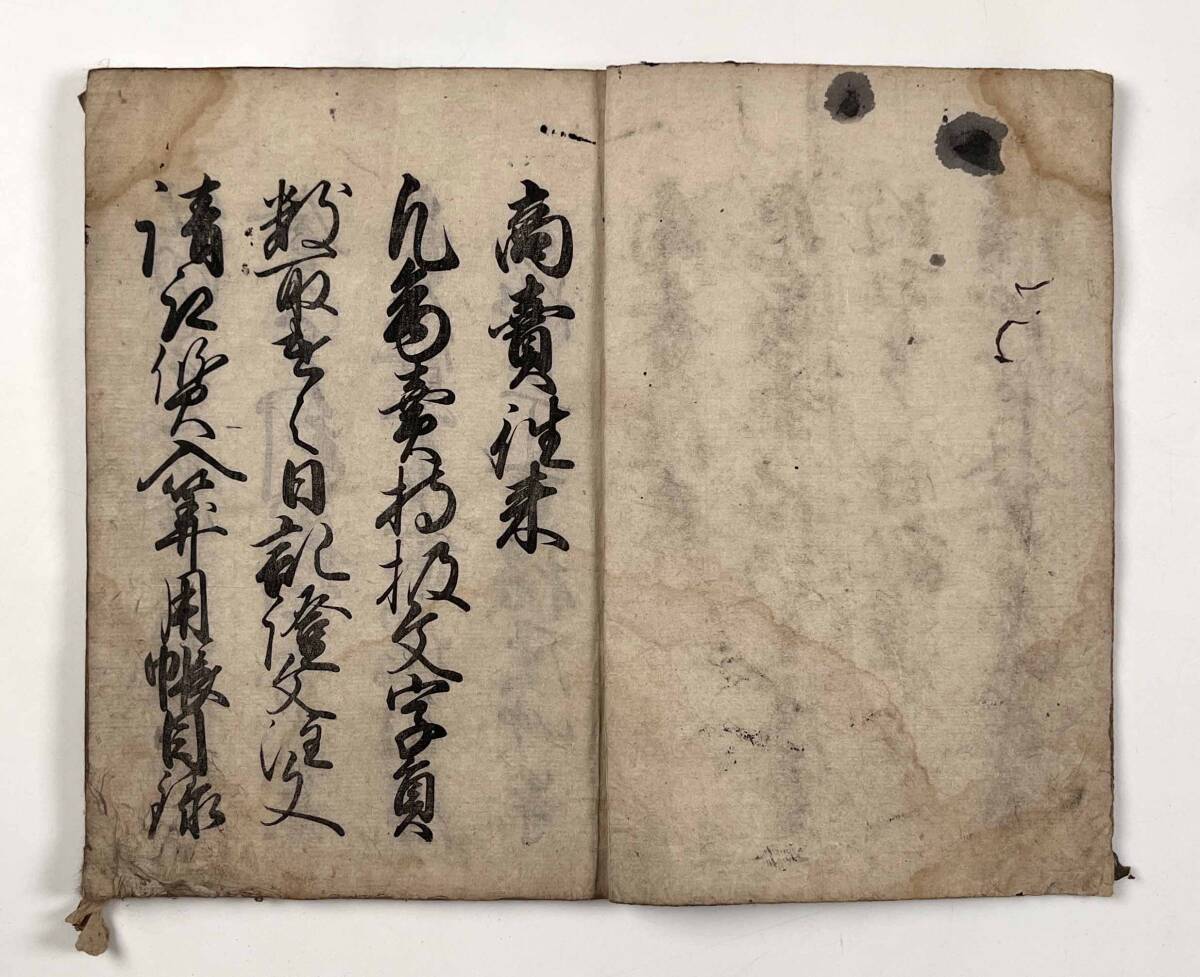 商賣往来
凡商賣持扱文字員
数取遣之日記證文注文
請取質入算用帳目録